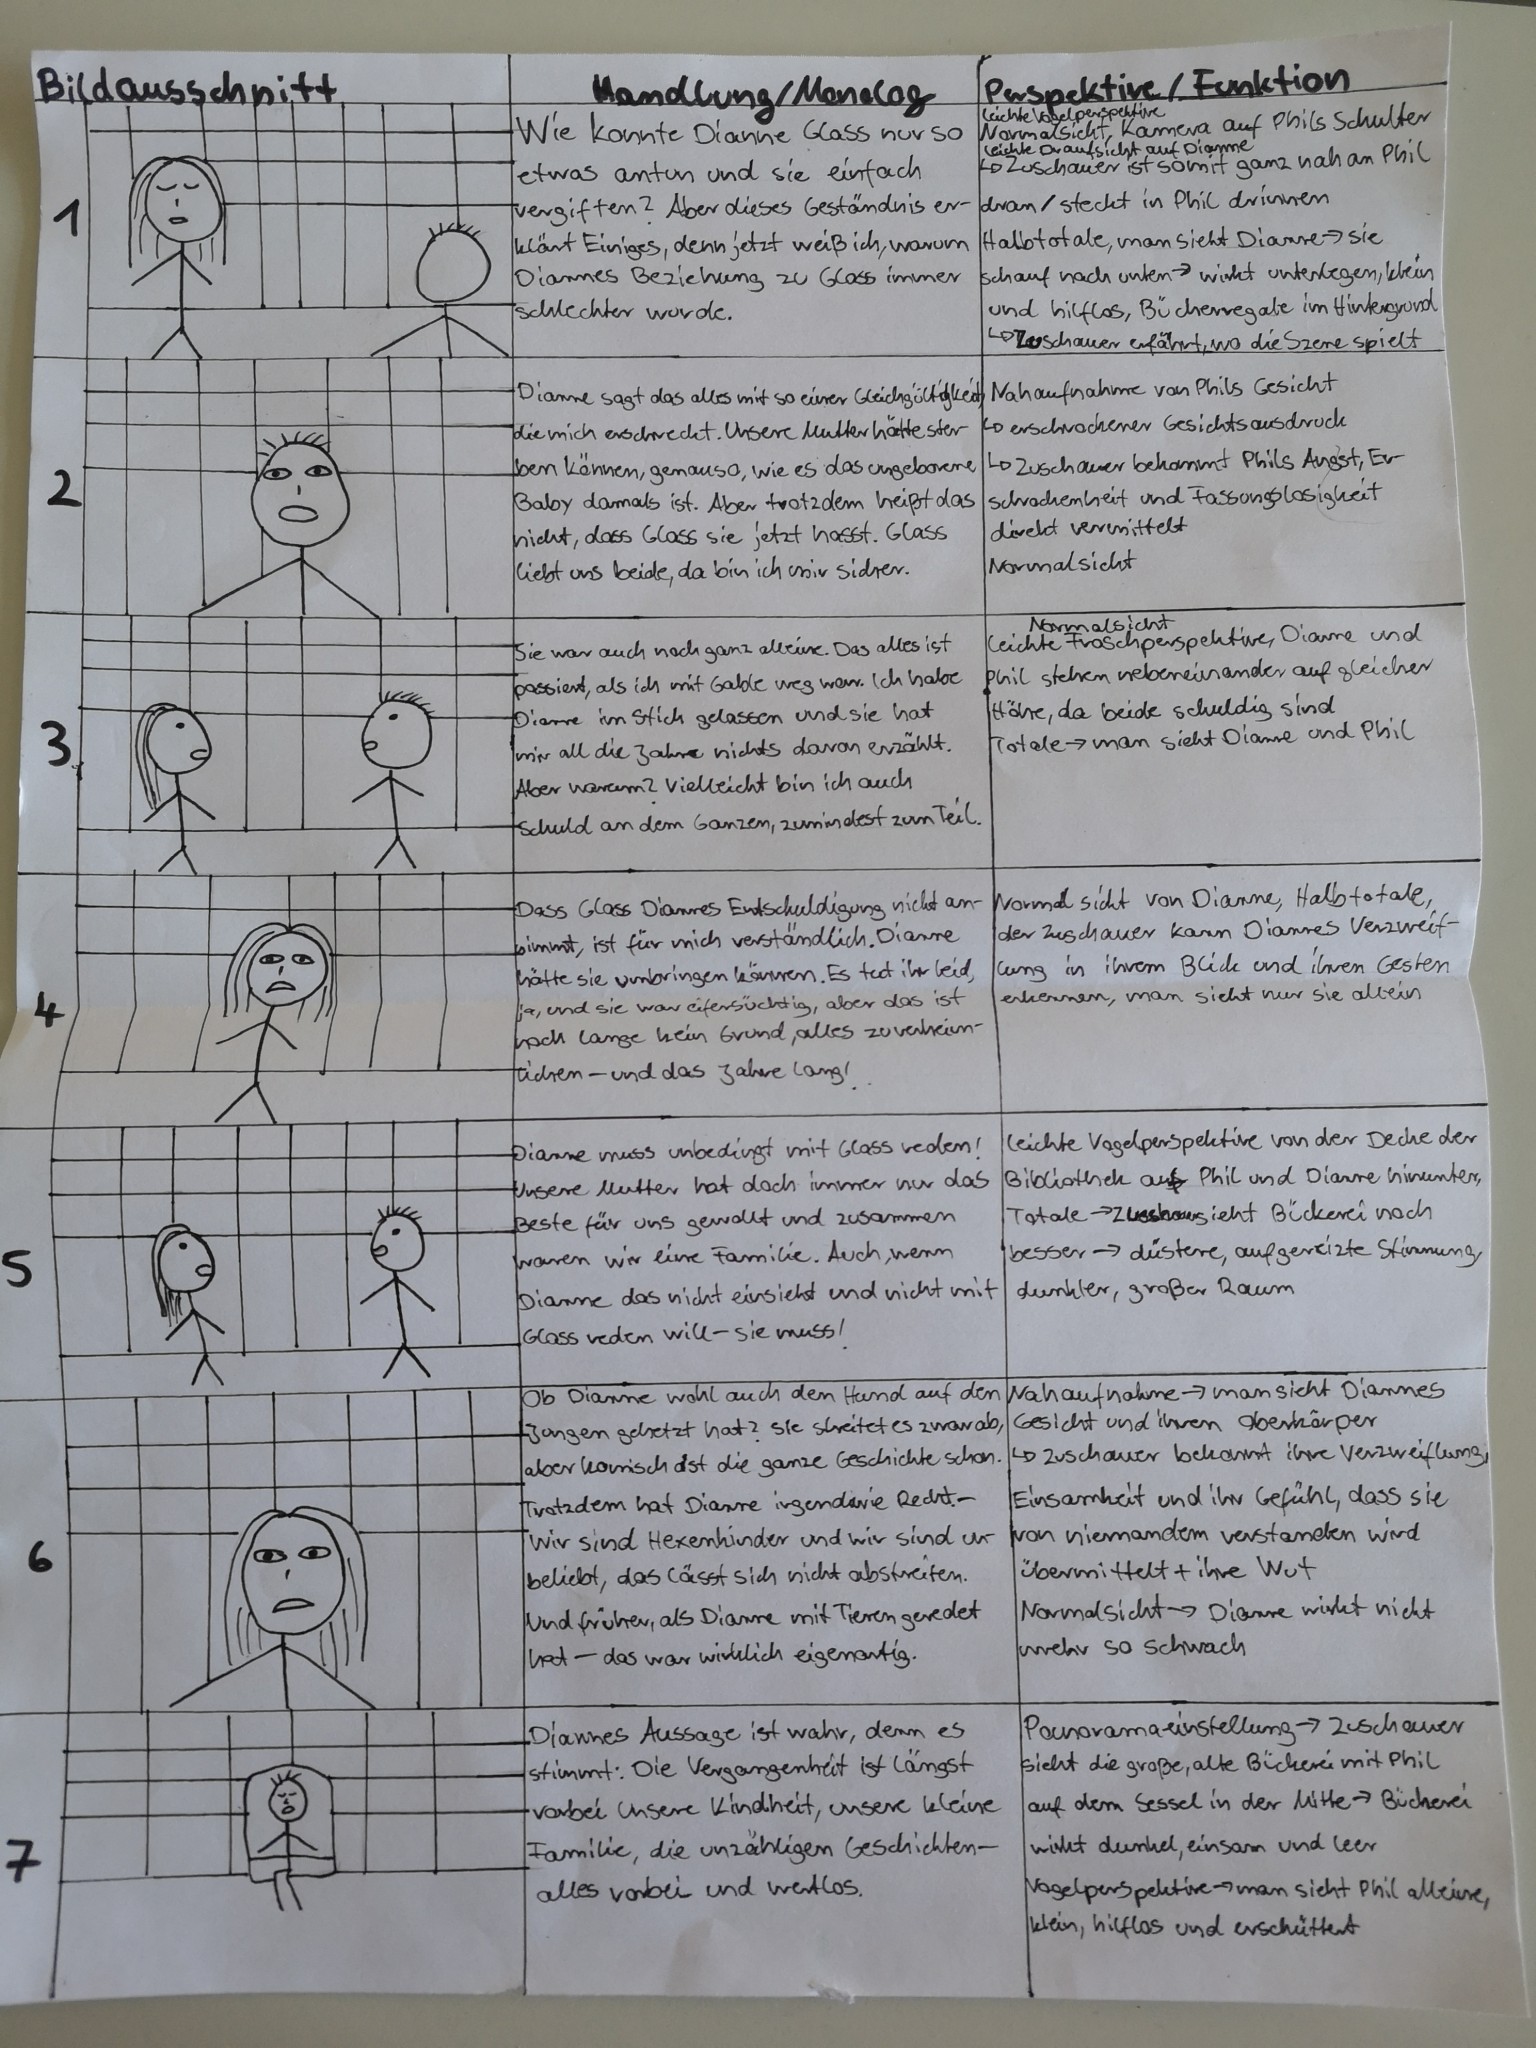 Bildausschnitt
Handlung/Monolog
Perspektive/Funktion
1
Wie konnte Dianne Glass nur so
etwas antun und sie einfach
vergiften? Aber dieses Geständnis er-
klärt Einiges, denn jetzt weiß ich, warum
Diannes Beziehung zu Glass immer
schlechter wurde.
leichte Vogelperspektive
Normalsicht, Kamera auf Phils Schulter
leichte Draufsicht auf Dianne
↳ Zuschauer ist somit ganz nah an Phil
dran/steckt in Phil drinnen
Halbtotale, man sieht Dianne → sie
schauf nach unten → wirkt unterlegen, klein
und hilflos, Bücherregale im Hintergrund
↳ Zuschauer erfährt, wo die Szene spielt
2
Dianne sagt das alles mit so einer Gleichgültigkeit,
die mich erschreckt. Unsere Mutter hätte ster-
ben können, genauso, wie es das ungeborene
Baby damals ist. Aber trotzdem heißt das
nicht, dass Glass sie jetzt hasst. Glass
liebt uns beide, da bin ich mir sicher.
Nahaufnahme von Phils Gesicht
↳ erschrockener Gesichtsausdruck
↳ Zuschauer bekommt Phils Angst, Er-
schrockenheit und Fassungslosigkeit
direkt vermittelt
Normalsicht
3
Sie war auch noch ganz alleine. Das alles ist
passiert, als ich mit Gable weg war. Ich habe
Dianne im Stich gelassen und sie hat
mir all die Jahre nichts davon erzählt.
Aber warum? Vielleicht bin ich auch
Schuld an dem Ganzen, zumindest zum Teil.
Normalsicht
leichte Froschperspektive, Dianne und
Phil stehen nebeneinander auf gleicher
Höhe, da beide schuldig sind
Totale → man sieht Dianne und Phil
4
Dass Glass Diannes Entschuldigung nicht an-
nimmt, ist für mich verständlich. Dianne
hätte sie umbringen können. Es tut ihr leid,
ja, und sie war eifersüchtig, aber das ist
noch lange kein Grund, alles zu verheim-
lichen – und das Jahre lang!
Normalsicht von Dianne, Halbtotale,
der Zuschauer kann Diannes Verzweif-
lung in ihrem Blick und ihren Gesten
erkennen, man sieht nur sie allein
5
Dianne muss unbedingt mit Glass reden!
Unsere Mutter hat doch immer nur das
Beste für uns gewollt und zusammen
waren wir eine Familie. Auch, wenn
Dianne das nicht einsieht und nicht mit
Glass reden will – sie muss!
leichte Vogelperspektive von der Decke der
Bibliothek auf Phil und Dianne hinunter,
Totale → sieht Bückerei noch
besser → düstere, aufgereizte Stimmung,
dunkler, großer Raum
6
Ob Dianne wohl auch den Hund auf den
Jungen gehetzt hat? Sie streitet es zwar ab,
aber komisch ist die ganze Geschichte schon.
Trotzdem hat Dianne irgendwie Recht –
Wir sind Hexenkinder und wir sind un-
beliebt, das lässt sich nicht abstreiten.
Und früher, als Dianne mit Tieren geredet
hat – das war wirklich eigenartig.
Nahaufnahme → man sieht Diannes
Gesicht und ihren Oberkörper
↳ Zuschauer bekommt ihre Verzweiflung,
Einsamheit und ihr Gefühl, dass sie
von niemandem verstanden wird
übermittelt + ihre Wut
Normalsicht → Dianne wirkt nicht
mehr so schwach
7
Diannes Aussage ist wahr, denn es
stimmt: Die Vergangenheit ist längst
vorbei Unsere Kindheit, unsere kleine
Familie, die unzähligen Geschichten –
alles vorbei und wertlos.
Panoramaeinstellung → Zuschauer
sieht die große, alte Bückerei mit Phil
auf dem Sessel in der Mitte → Bückerei
wirkt dunkel, einsam und leer
Vogelperspektive → man sieht Phil alleine,
klein, hilflos und erschüttert